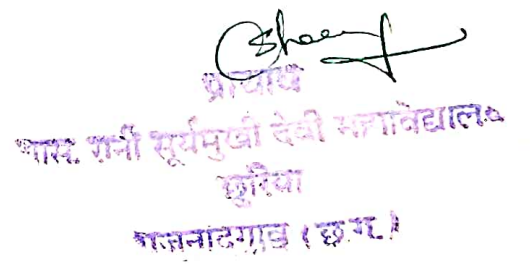 प्राचार्य
शास. रानी सूर्यमुखी देवी महाविद्यालय
छुरिया
राजनांदगाव (छ.ग.)